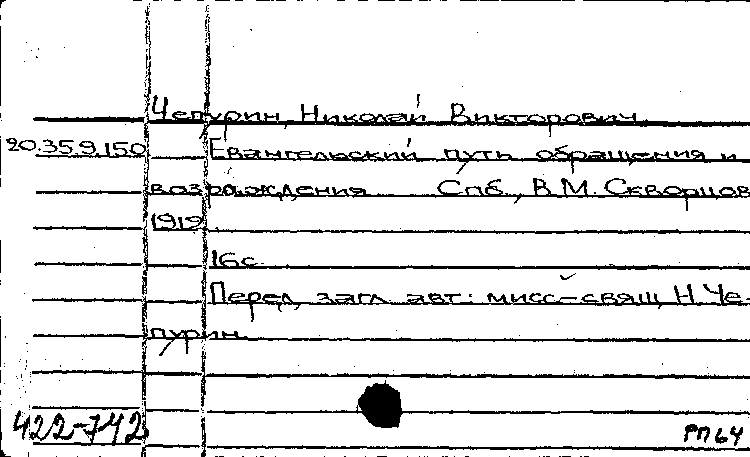 Чепурин, Николай Викторович.
20.35.9.150 Евангельский путь обращения и
возрождения Спб., В.М. Скворцов
1912.
16с.
Перед загл. авт.: мисс-свящ. Н. Че-
пурин.
422-742
РП 64